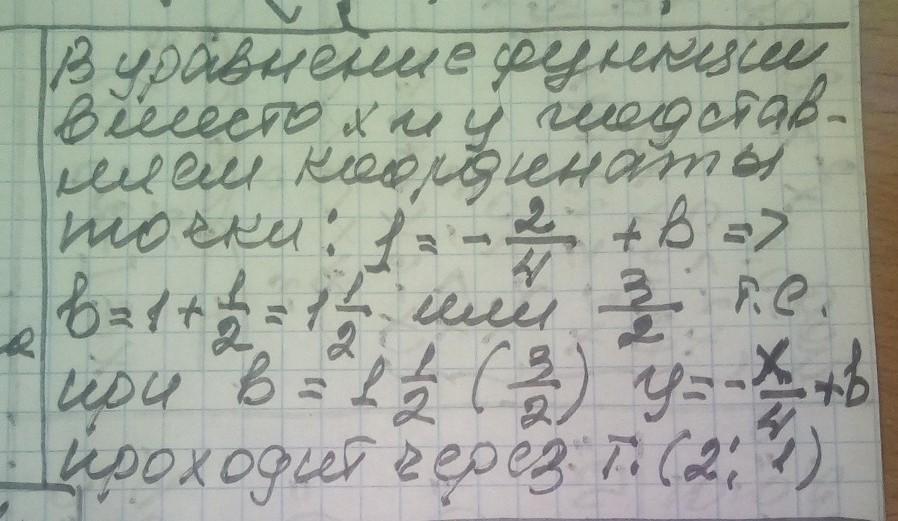 В уравнение функции
вместо x и y подстав-
ляем координаты
точки: 1 = - 2/4 + b =>
b = 1 + 1/2 = 1 1/2 или 3/2 т.е.
при b = 1 1/2 (3/2) y = - x/4 + b
проходит через т. (2; 1)